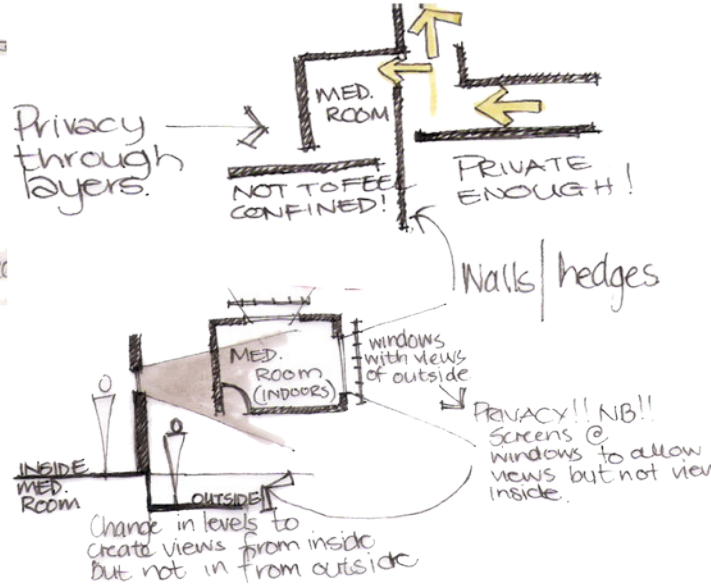 MED.
ROOM
Privacy
through
layers.
NOT TO FEEL
CONFINED!
PRIVATE
ENOUGH!
Walls/hedges
MED.
ROOM
(INDOORS)
windows
with views
of outside
PRIVACY!! NB!!
Screens @
windows to allow
views but not view
inside.
INSIDE
MED.
ROOM
OUTSIDE
Change in levels to
create views from inside
but not in from outside